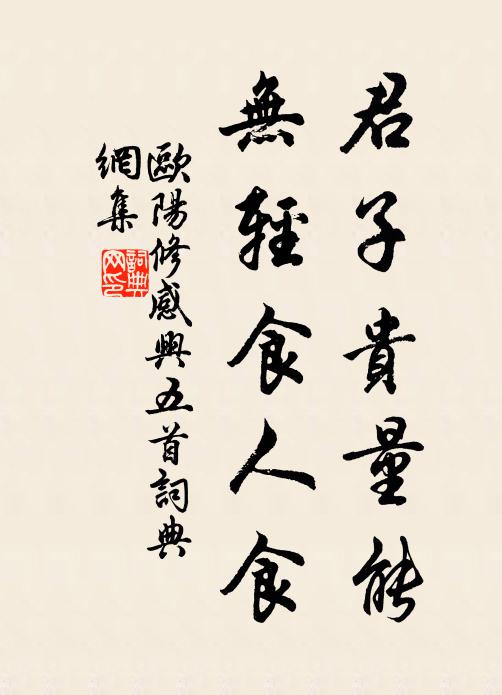 君子貴量能
無輕食人食
歐陽修感興五首詞典
網集
詞典
网印